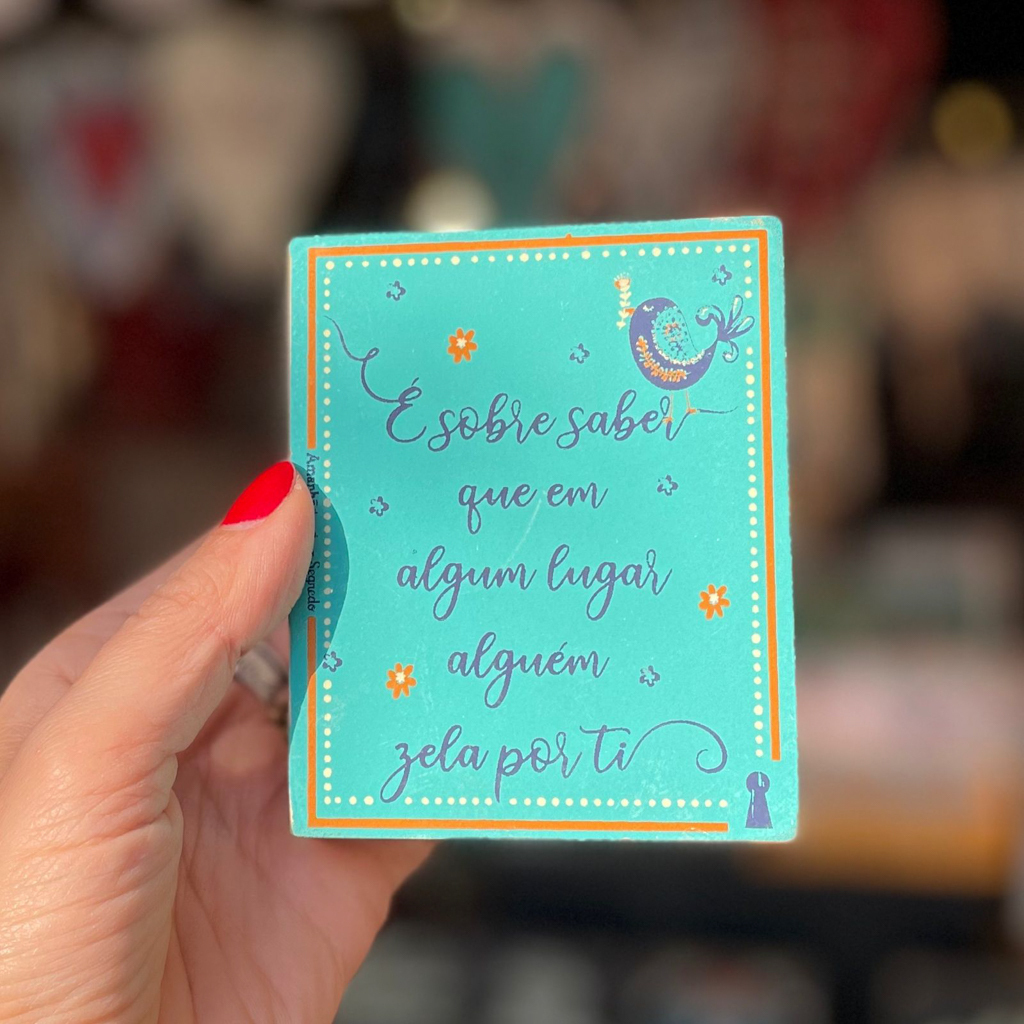 É sobre saber
que em
algum lugar
alguém
zela por ti
Segredo